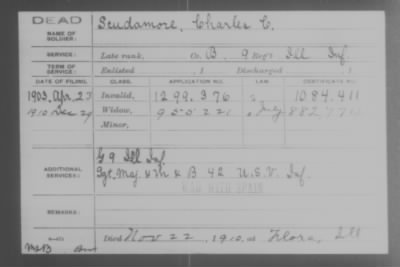 DEAD
NAME OF SOLDIER: Scudamore, Charles C.
SERVICE: Late rank, Co. B, 9 Reg't Ill Inf
TERM OF SERVICE: Enlisted , 1 Discharged , 1
DATE OF FILING. CLASS. APPLICATION NO. LAW. CERTIFICATE NO.
1903, Apr. 23 Invalid, 1299.376 1084.411
1910 Dec 29 Widow, 955221
Minor,
ADDITIONAL SERVICES: G 9 Ill Inf
Sgt. Maj. & B 42 U.S.V. Inf.
WAR WITH SPAIN
REMARKS:
Died Nov 22, 1910, at Flora, Ill